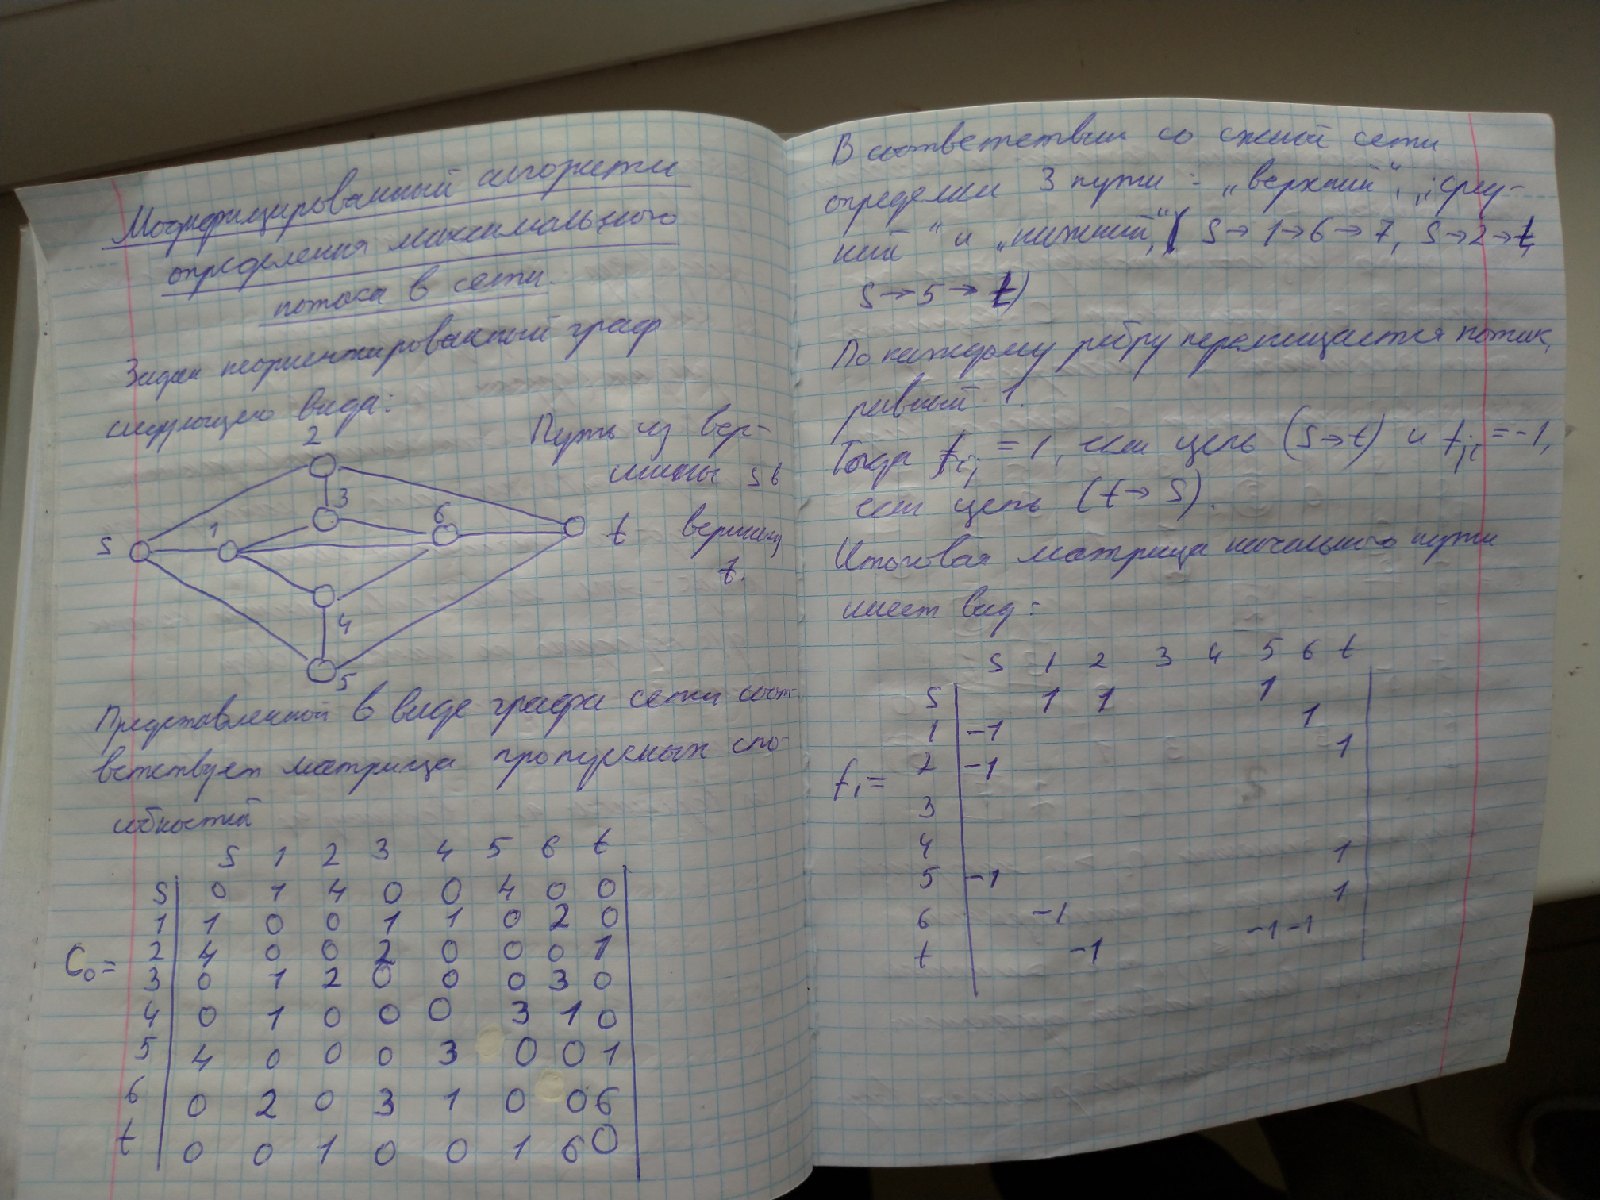 Модифицированный алгоритм
определения максимального
потока в сети.
Задан неориентированный граф
следующего вида:
Путь из вер-
шины s в
вершину
t.
2
3
6
1
S
t
4
5
Представленной в виде графа сети соот-
ветствует матрица пропускных спо-
собностей
S 1 2 3 4 5 6 t
S 0 1 4 0 0 4 0 0
1 1 0 0 1 1 0 2 0
C₀= 2 4 0 0 2 0 0 0 1
3 0 1 2 0 0 0 3 0
4 0 1 0 0 0 3 1 0
5 4 0 0 0 3 0 0 1
6 0 2 0 3 1 0 0 6
t 0 0 1 0 0 1 6 0
В соответствии со схемой сети
определим 3 пути: „верхний“, „сред-
ний“ и „нижний“, ( S→1→6→7, S→2→t,
S→5→t)
По каждому ребру перемещается поток,
равный 1.
Тогда fij = 1, если цепь (S→t) и fji = -1,
если цепь (t→S).
Итоговая матрица начального пути
имеет вид:
S 1 2 3 4 5 6 t
S 1 1 1
1 -1 1
f₁= 2 -1 1
3
4
5 -1 1
6 -1 1
t -1 -1 -1